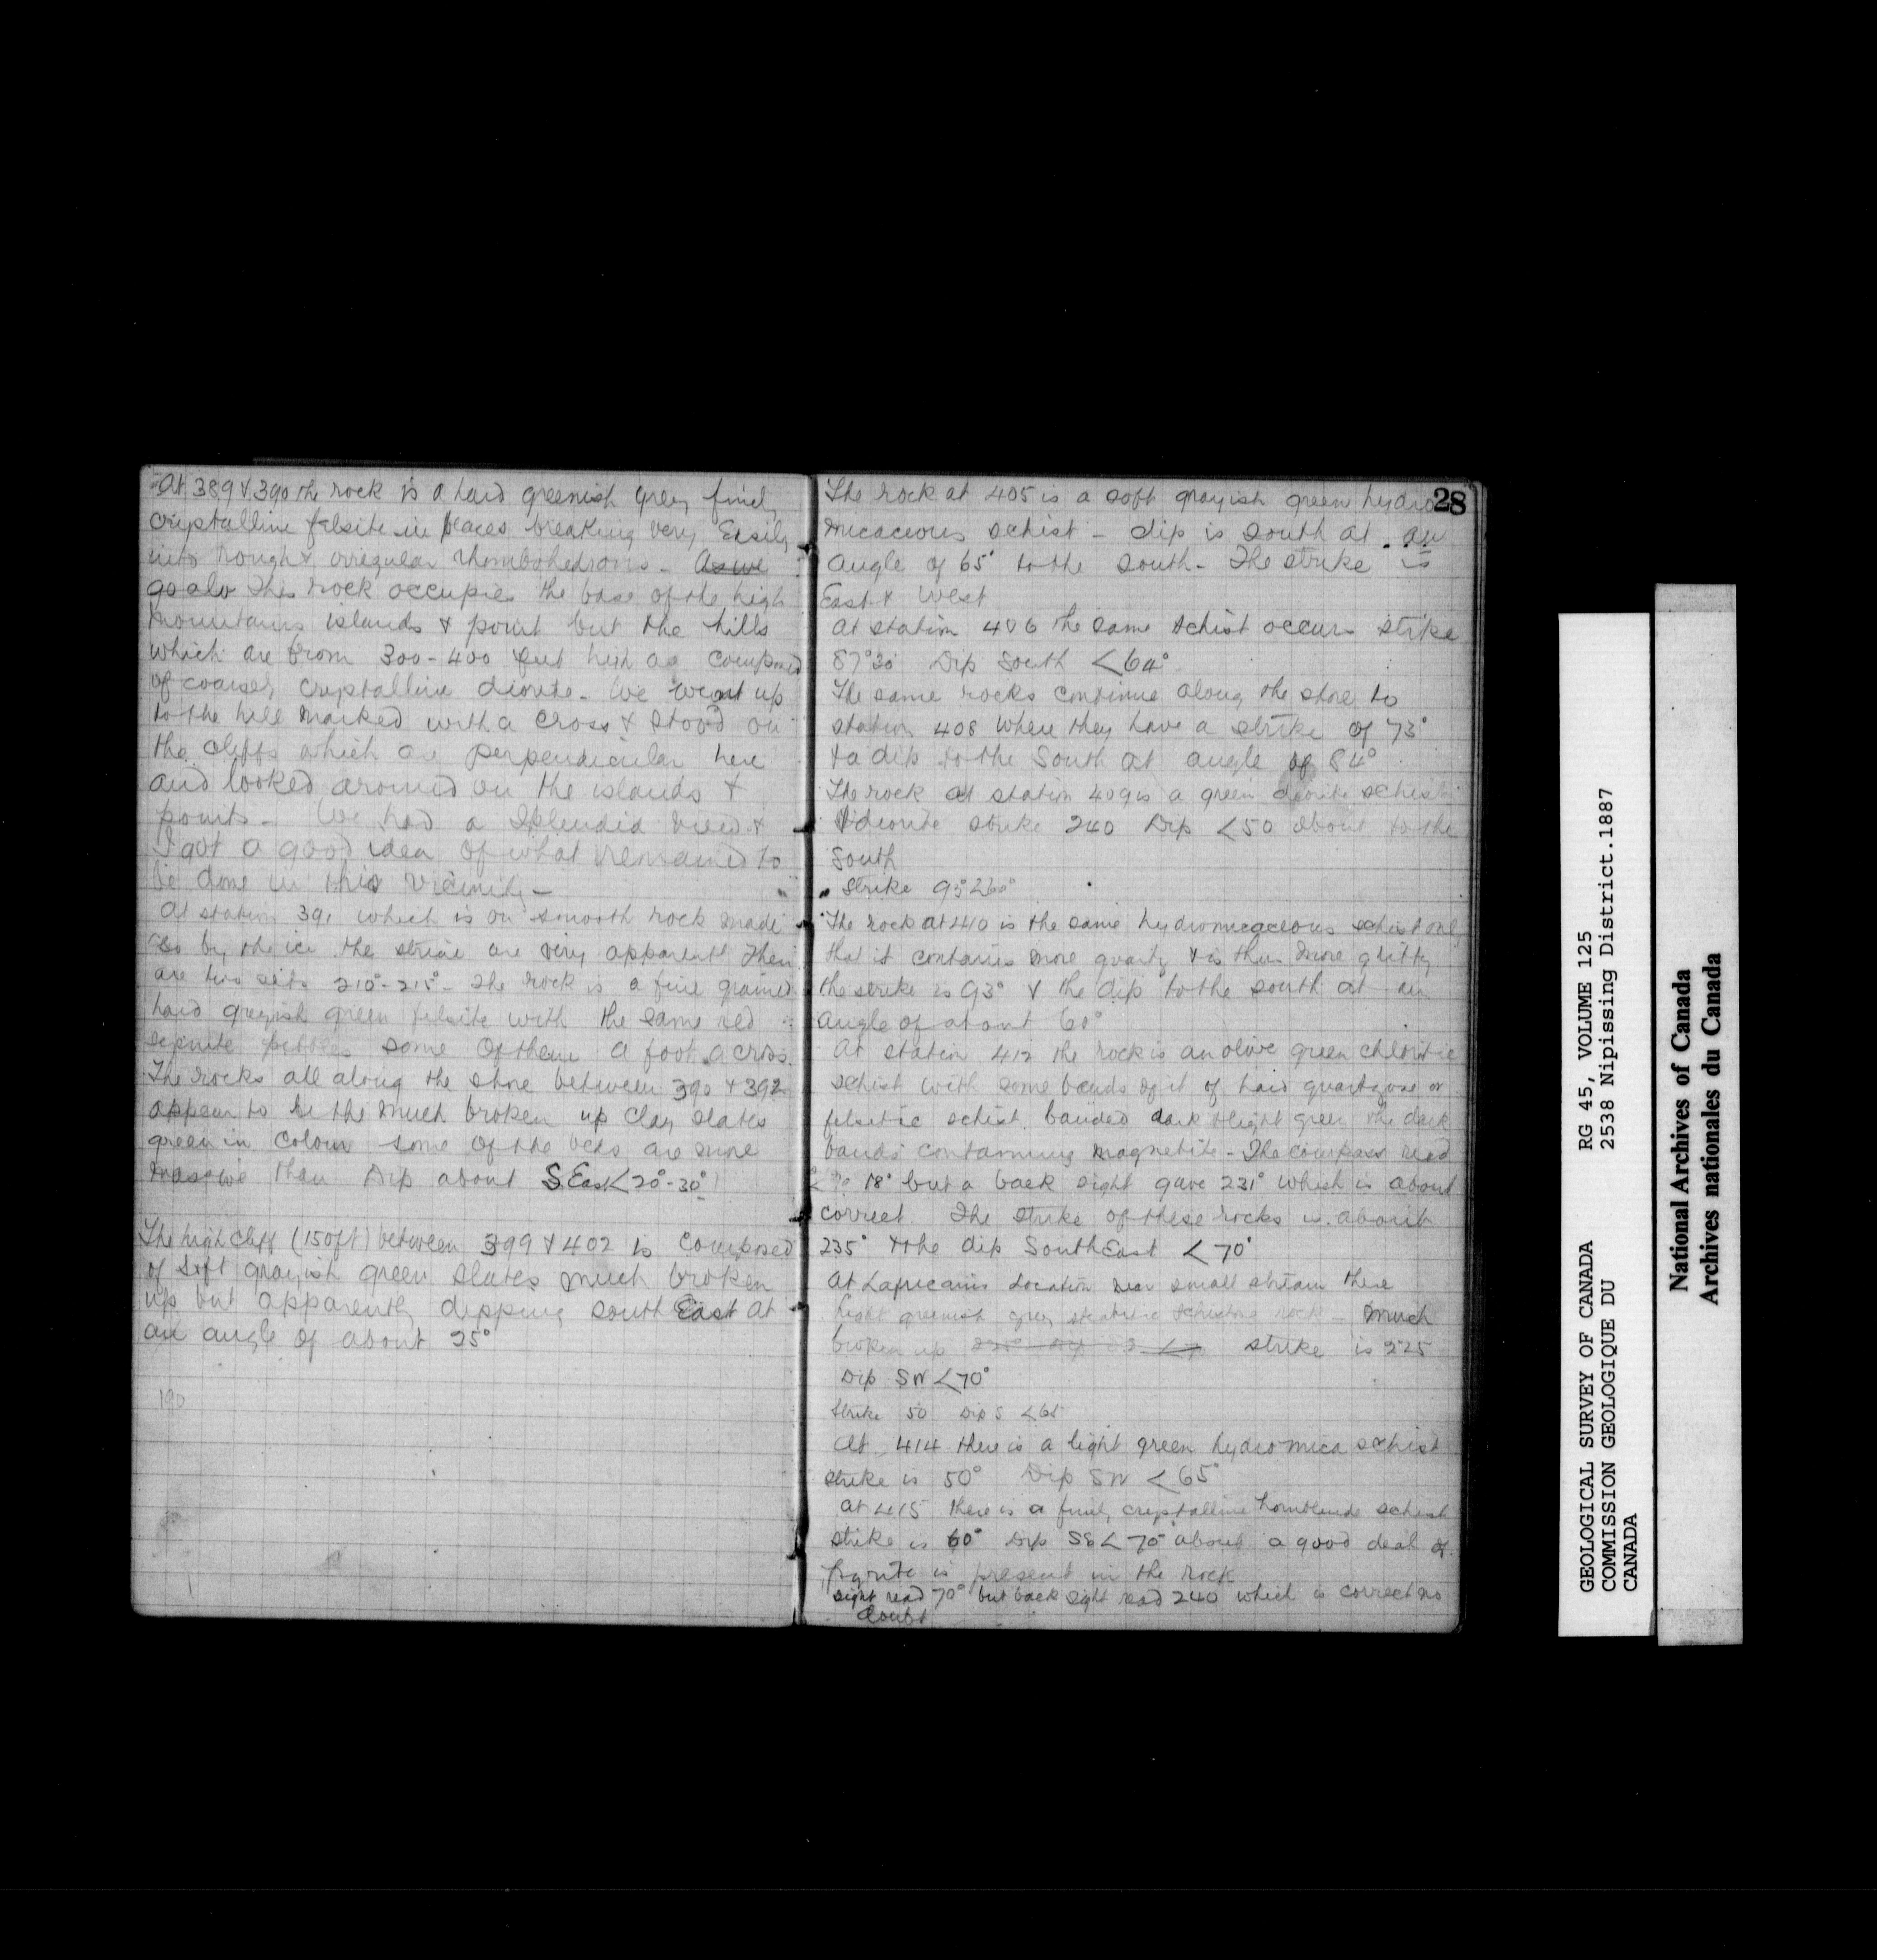 At 389 & 390 the rock is a hard greenish grey finely
crystalline felsite in places breaking very Easily
into rough & irregular rhombohedrons - As we
go alo This rock occupies the base of the high
mountains islands & point but the hills
which are from 300-400 feet high are composed
of coarser crystalline diorite - We went up
to the hill marked with a cross & stood on
the cliffs which are perpendicular here
and looked around on the islands &
points - We had a splendid view &
I got a good idea of what remained to
be done in this vicinity -
At station 391 which is on smooth rock made
so by the ice the striae are very apparent There
are two sets 210°-215° - The rock is a fine grained
hard greyish green felsite with the same red
syenite pebbles some of them a foot across.
The rocks all along the shore between 390 & 392
appear to be the much broken up clay slates
green in colour some of the beds are more
massive than Dip about S.East <20°-30°
The high cliff (150ft) between 399 & 402 is composed
of soft grayish green slates much broken
up but apparently dipping south East at
an angle of about 25°
190
28
The rock at 405 is a soft grayish green hydro
micaceous schist - dip is south at an
angle of 65° to the south - The strike is
East & West
At station 406 the same schist occurs strike
87°30' Dip South <64°
The same rocks continue along the shore to
station 408 where they have a strike of 73°
& a dip to the South at angle of 84°
The rock at station 409 is a green diorite schist
& diorite strike 240 Dip <50 about to the
South
Strike 93° <60°
The rock at 410 is the same hydromicaceous schist only
that it contains more quartz & is thus more gritty
the strike is 93° & the dip to the south at an
angle of about 60°
At station 412 the rock is an olive green chloritic
schist with some bands of it of hard quartzose or
felsitic schist banded dark & light green the dark
bands containing magnetite - The compass read
18° but a back sight gave 231° which is about
correct. The strike of these rocks is about
235° & the dip South East <70°
At Location near small stream there
light greenish grey schistose rock - much
broken up strike is 225
Dip SW <70°
Strike 50 Dip S <65
At 414 there is a light green hydromica schist
strike is 50° Dip SW <65°
At 415 there is a finely crystalline hornblende schist
strike is 60° Dip SE <70° about a good deal of
pyrite is present in the rock
sight read 70° but back sight read 240 which is correct no
doubt
GEOLOGICAL SURVEY OF CANADA RG 45, VOLUME 125
COMMISSION GEOLOGIQUE DU 2538 Nipissing District.1887
CANADA
National Archives of Canada
Archives nationales du Canada